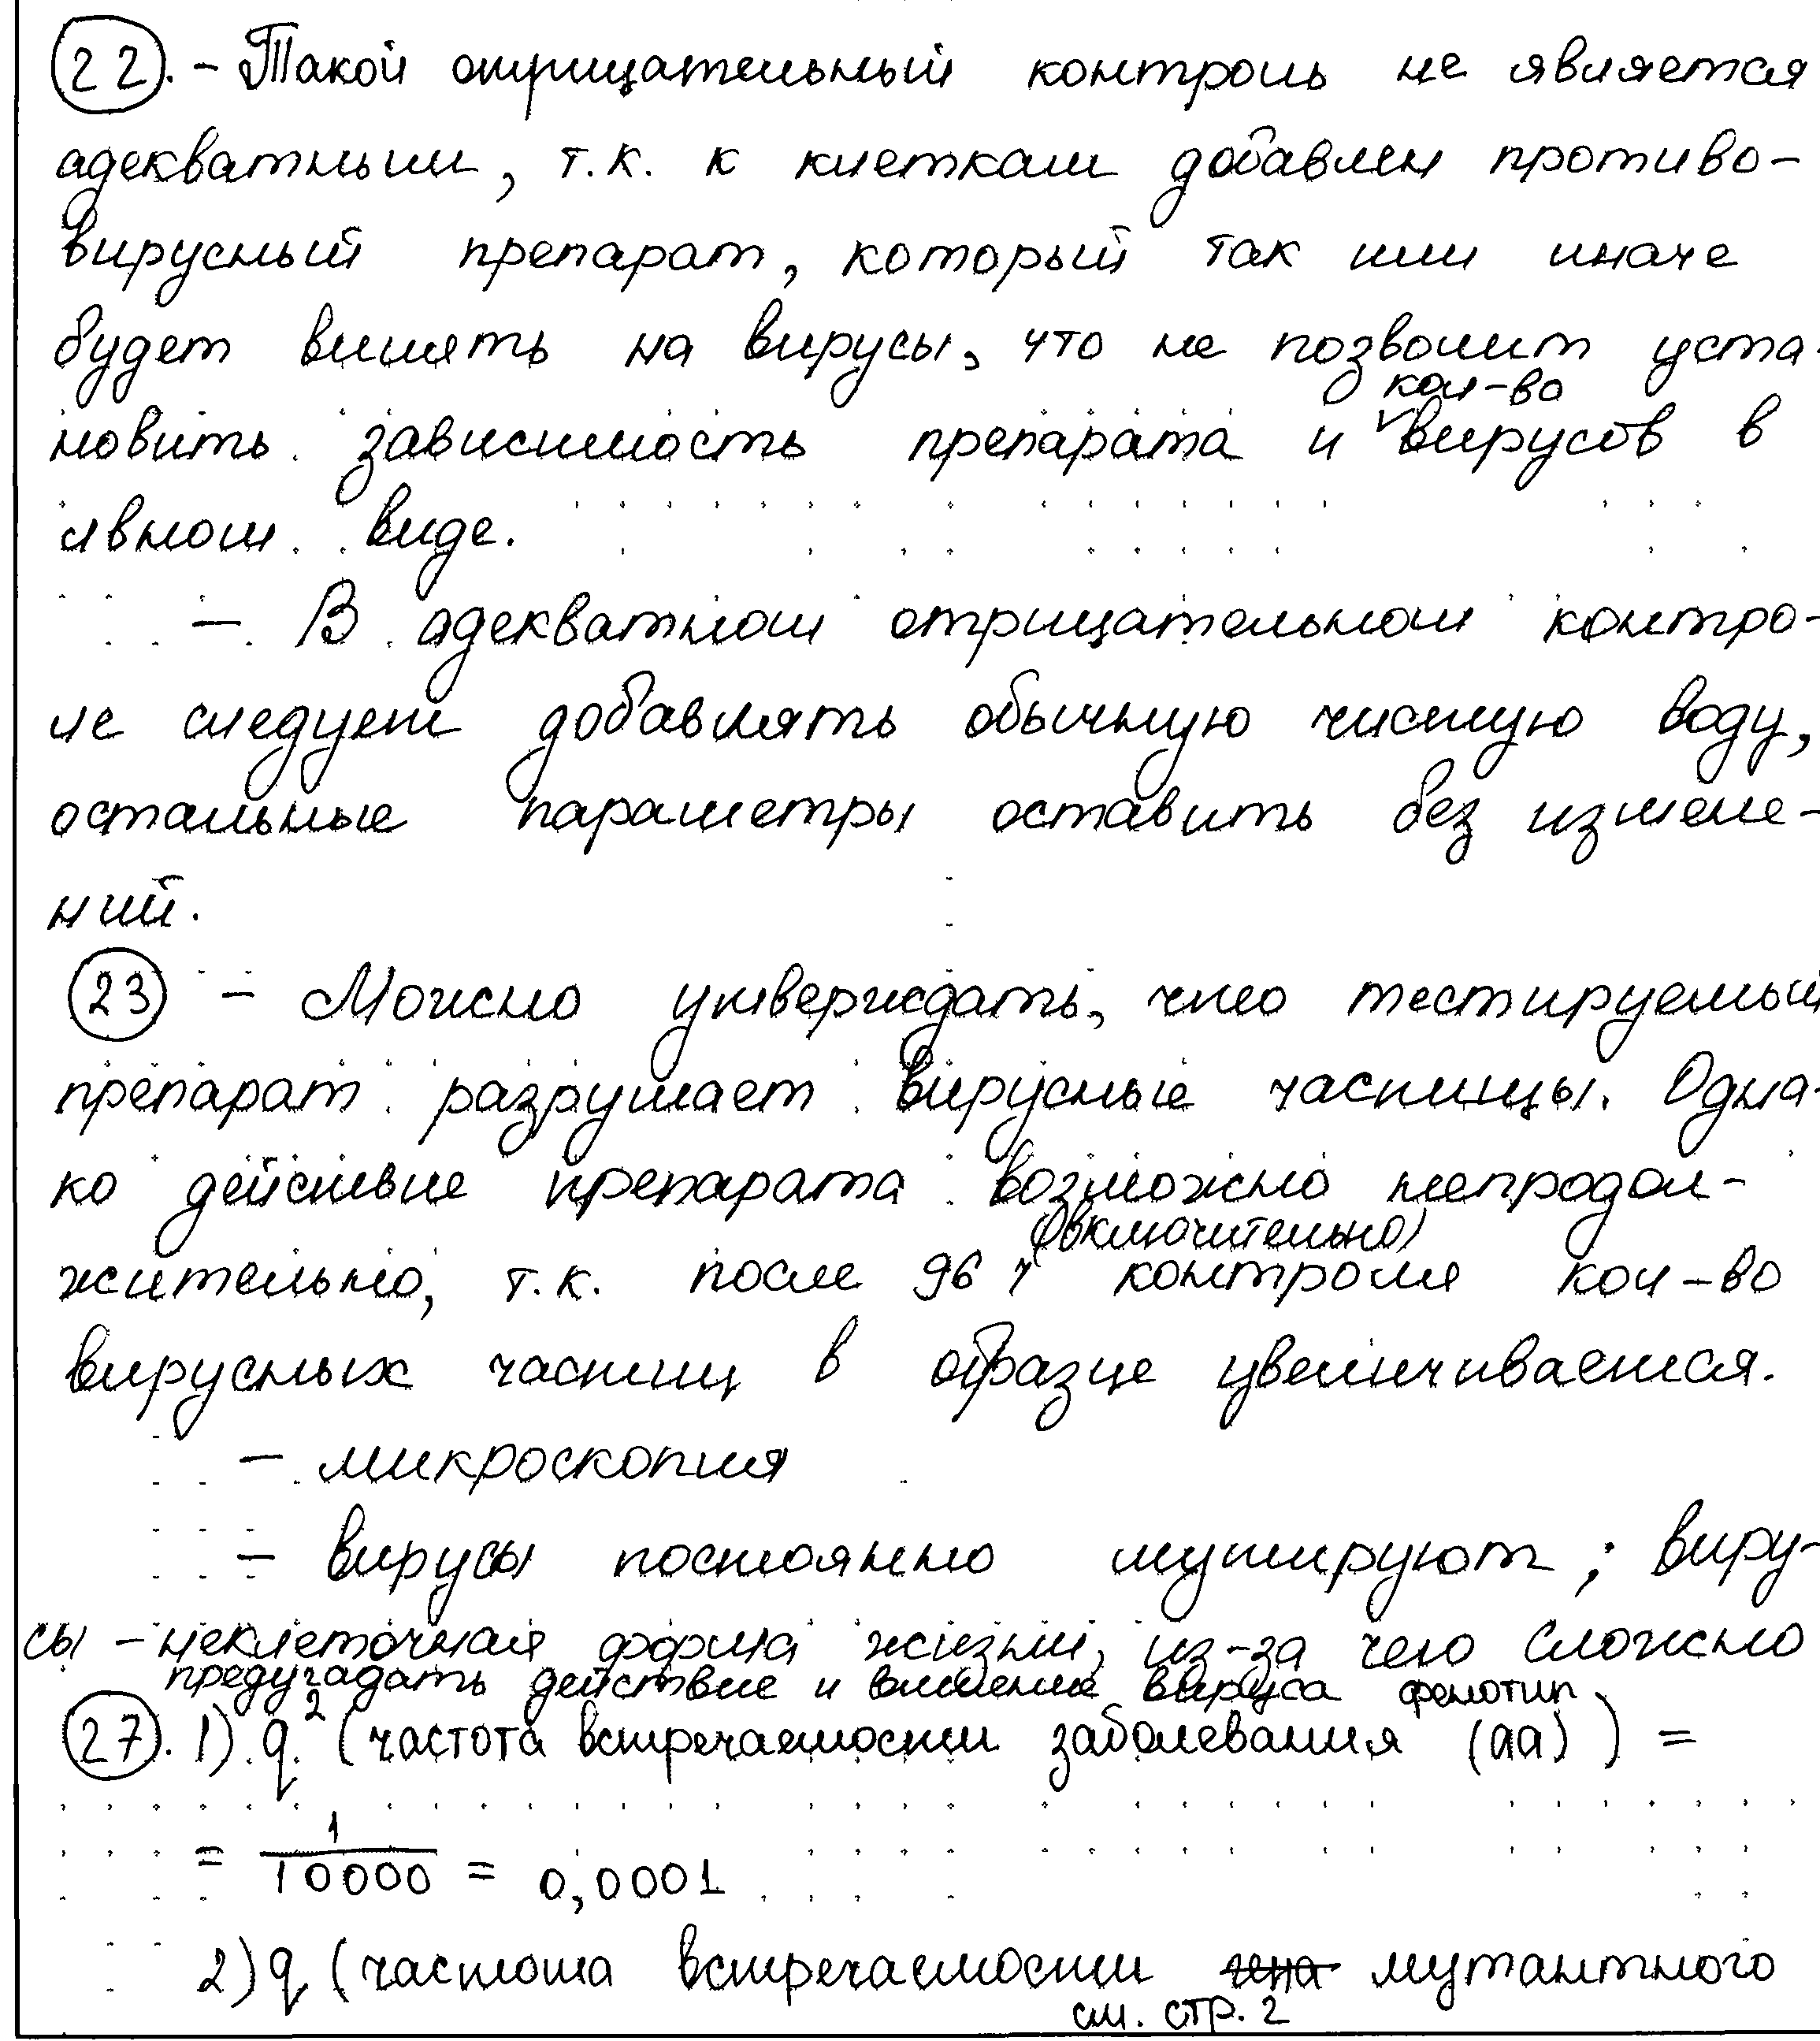 22. - Такой отрицательный контроль не является
адекватным, т.к. к клеткам добавлен противо-
вирусный препарат, который так или иначе
будет влиять на вирусы, что не позволит уста-
кол-во
новить зависимость препарата и вирусов в
явном виде.
- В адекватном отрицательном контро-
ле следует добавлять обычную чистую воду,
остальные параметры оставить без измене-
ний.
23 - Можно утверждать, что тестируемый
препарат разрушает вирусные частицы. Одна-
ко действие препарата возможно непродол-
(включительно)
жительно, т.к. после 96 ч контроля кол-во
вирусных частиц в образце увеличивается.
- микроскопия
- вирусы постоянно мутируют; виру-
сы - неклеточная форма жизни, из-за чего сложно
предугадать действие и влияние вируса
фенотип
27. 1) q² (частота встречаемости заболевания (аа)) =
= 1/10000 = 0,0001
2) q (частота встречаемости гена мутантного
см. стр. 2